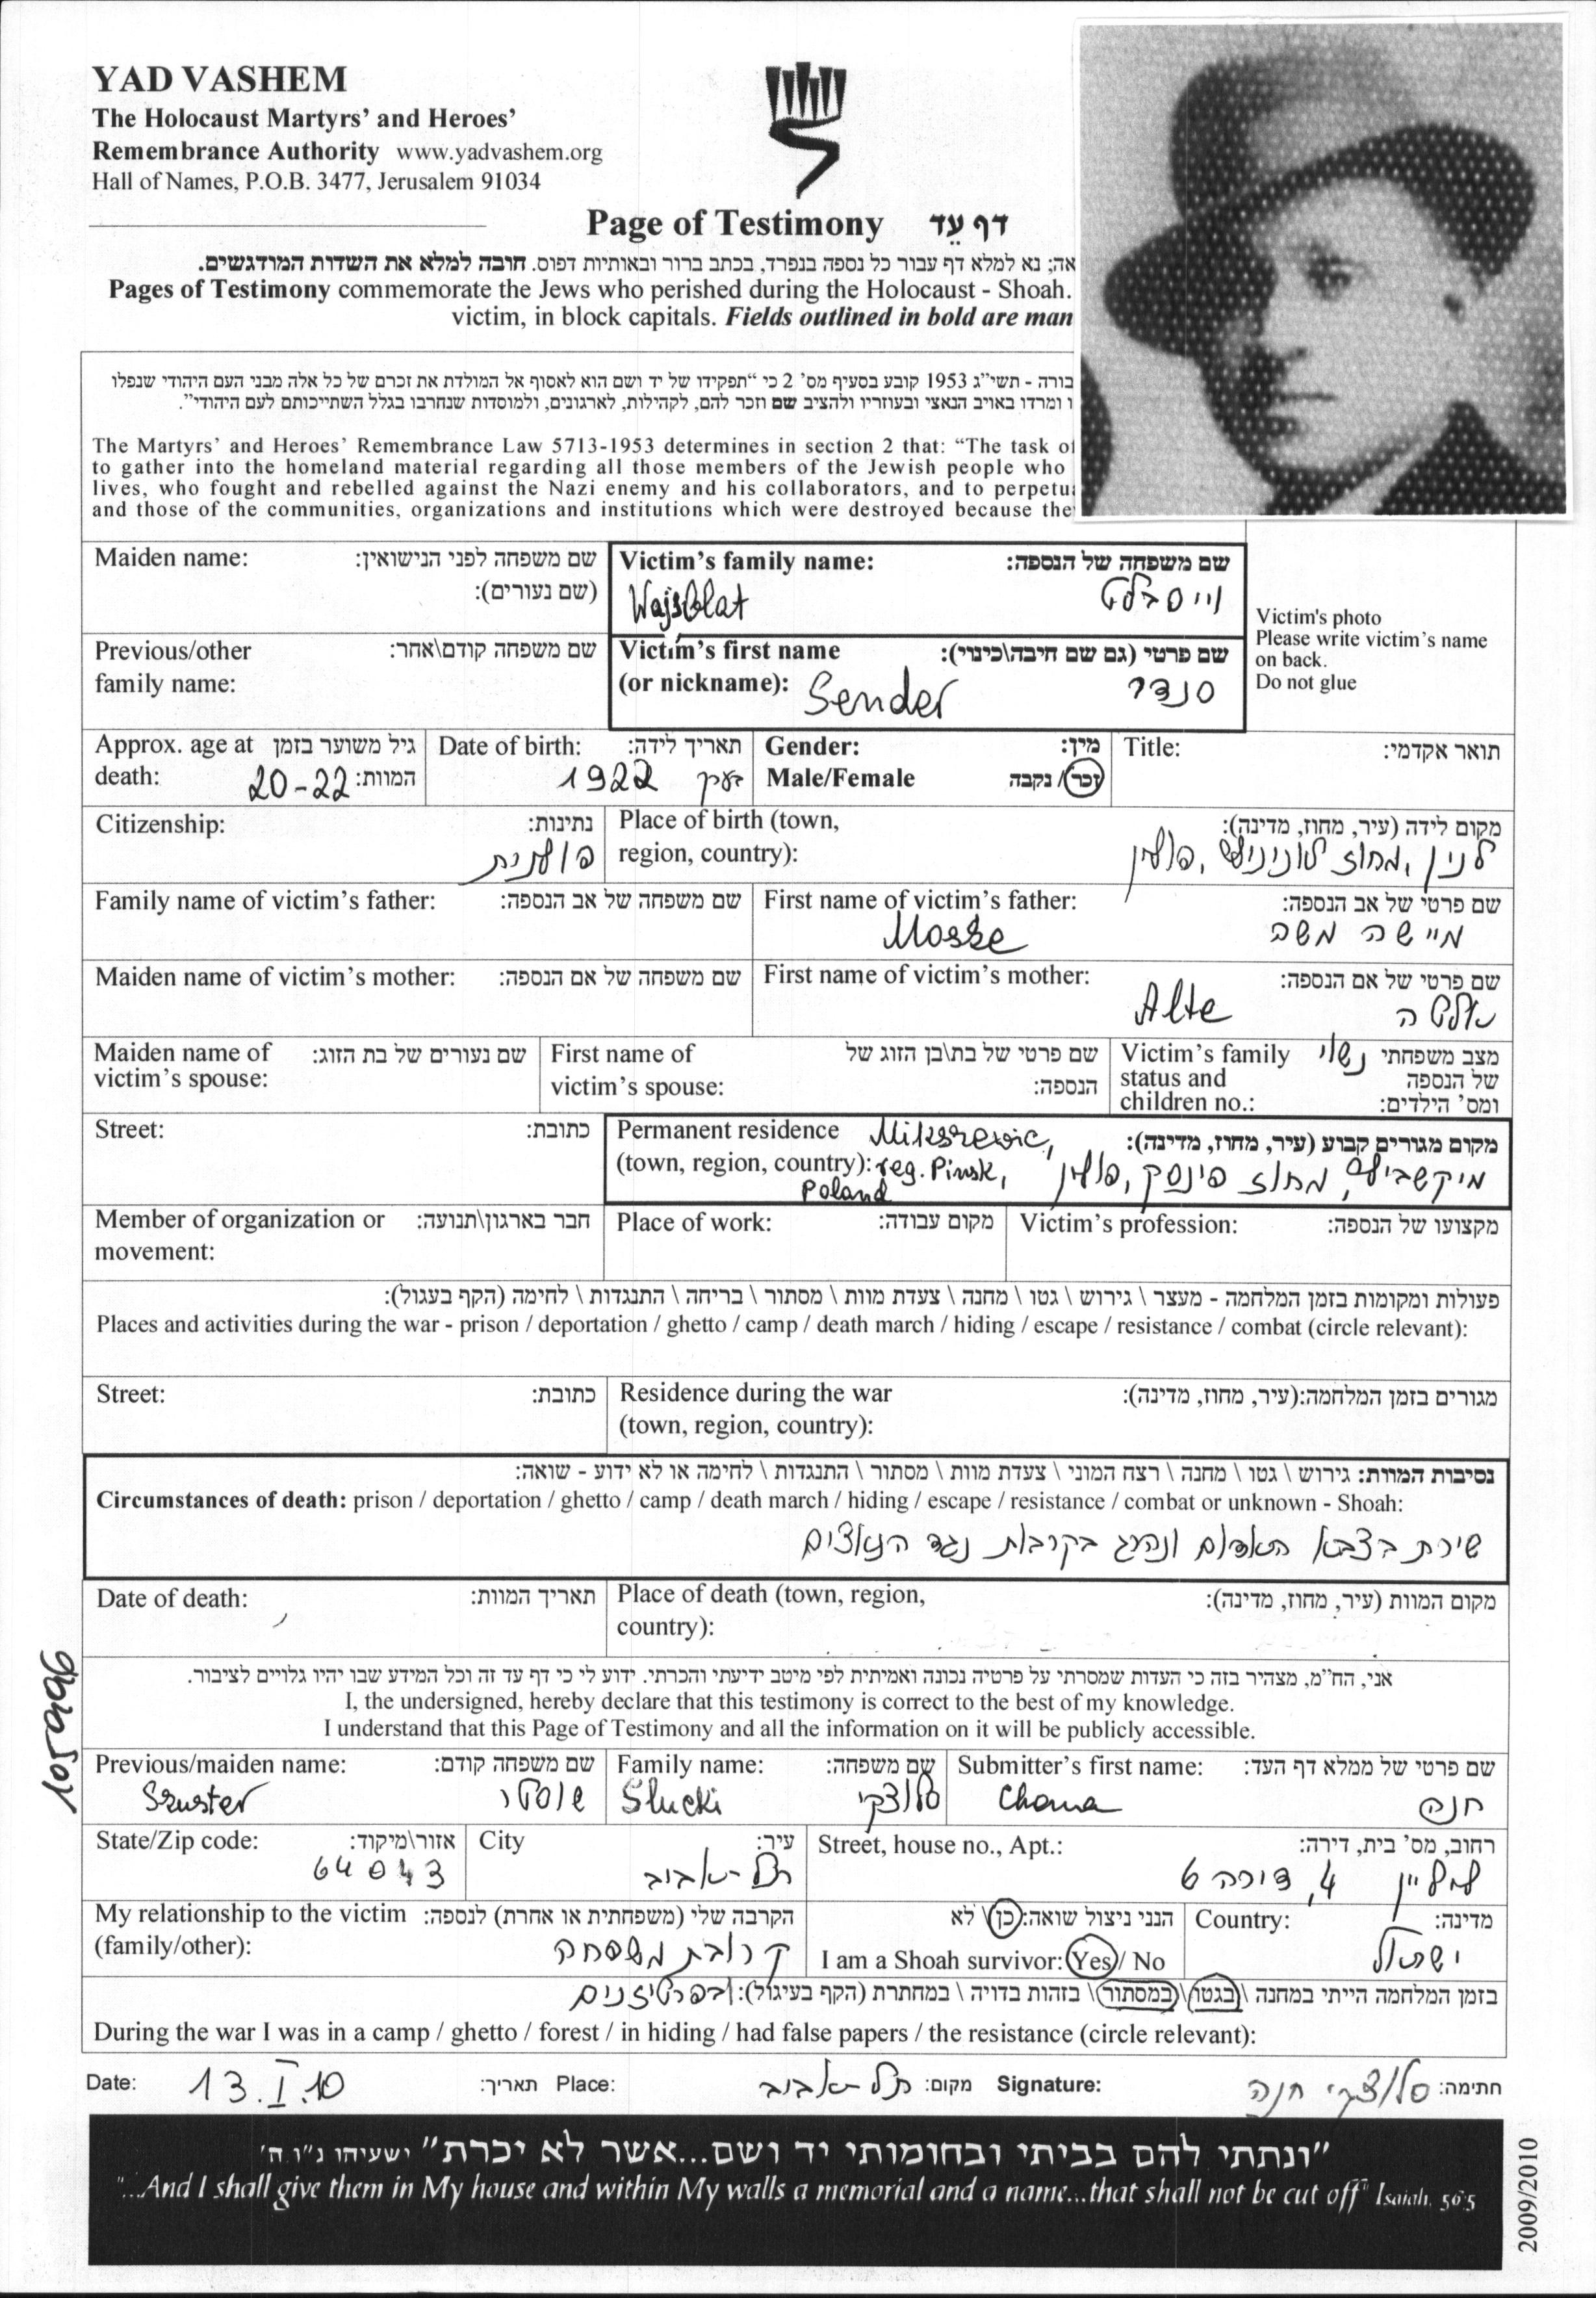 YAD VASHEM
The Holocaust Martyrs' and Heroes'
Remembrance Authority www.yadvashem.org
Hall of Names, P.O.B. 3477, Jerusalem 91034
Page of Testimony דף עֵד
אה; נא למלא דף עבור כל נספה בנפרד, בכתב ברור ובאותיות דפוס. חובה למלא את השדות המודגשים.
Pages of Testimony commemorate the Jews who perished during the Holocaust - Shoah.
victim, in block capitals. Fields outlined in bold are man
בורה - תשי"ג 1953 קובע בסעיף מס' 2 כי "תפקידו של יד ושם הוא לאסוף אל המולדת את זכרם של כל אלה מבני העם היהודי שנפלו
ו ומרדו באויב הנאצי ובעוזריו ולהציב שם וזכר להם, לקהילות, לארגונים, ולמוסדות שנחרבו בגלל השתייכותם לעם היהודי".
The Martyrs' and Heroes' Remembrance Law 5713-1953 determines in section 2 that: "The task of
to gather into the homeland material regarding all those members of the Jewish people who
lives, who fought and rebelled against the Nazi enemy and his collaborators, and to perpetua
and those of the communities, organizations and institutions which were destroyed because the
Maiden name: שם משפחה לפני הנישואין:
(שם נעורים):
Victim's family name: שם משפחה של הנספה:
Wajsblat וייסבלט
Victim's photo
Please write victim's name
on back.
Do not glue
Previous/other שם משפחה קודם\אחר:
family name:
Victim's first name שם פרטי (גם שם חיבה\כינוי):
(or nickname): Sender סנדר
Approx. age at גיל משוער בזמן
death: המוות: 20-22
Date of birth: תאריך לידה:
1922 בערך
Gender: מין:
Male/Female זכר / נקבה
Title: תואר אקדמי:
Citizenship: נתינות:
פולנית
Place of birth (town, מקום לידה (עיר, מחוז, מדינה):
region, country): לנין, מחוז לונינייץ, פולין
Family name of victim's father: שם משפחה של אב הנספה:
First name of victim's father: שם פרטי של אב הנספה:
Mosze מיישה משה
Maiden name of victim's mother: שם משפחה של אם הנספה:
First name of victim's mother: שם פרטי של אם הנספה:
Alte אלטה
Maiden name of שם נעורים של בת הזוג:
victim's spouse:
First name of שם פרטי של בת\בן הזוג של
victim's spouse: הנספה:
Victim's family מצב משפחתי נשוי
status and של הנספה
children no.: ומס' הילדים:
Street: כתובת:
Permanent residence Mikszewic, מקום מגורים קבוע (עיר, מחוז, מדינה):
(town, region, country): reg. Pinsk, מיקשביץ, מחוז פינסק, פולין
Poland
Member of organization or חבר בארגון\תנועה:
movement:
Place of work: מקום עבודה:
Victim's profession: מקצועו של הנספה:
פעולות ומקומות בזמן המלחמה - מעצר \ גירוש \ גטו \ מחנה \ צעדת מוות \ מסתור \ בריחה \ התנגדות \ לחימה (הקף בעגול):
Places and activities during the war - prison / deportation / ghetto / camp / death march / hiding / escape / resistance / combat (circle relevant):
Street: כתובת:
Residence during the war מגורים בזמן המלחמה:(עיר, מחוז, מדינה):
(town, region, country):
נסיבות המוות: גירוש \ גטו \ מחנה \ רצח המוני \ צעדת מוות \ מסתור \ התנגדות \ לחימה או לא ידוע - שואה:
Circumstances of death: prison / deportation / ghetto / camp / death march / hiding / escape / resistance / combat or unknown - Shoah:
שירת בצבא האדום ונהרג בקרבות נגד הנאצים
Date of death: תאריך המוות:
Place of death (town, region, מקום המוות (עיר, מחוז, מדינה):
country):
אני, הח"מ, מצהיר בזה כי העדות שמסרתי על פרטיה נכונה ואמיתית לפי מיטב ידיעתי והכרתי. ידוע לי כי דף עד זה וכל המידע שבו יהיו גלויים לציבור.
I, the undersigned, hereby declare that this testimony is correct to the best of my knowledge.
I understand that this Page of Testimony and all the information on it will be publicly accessible.
Previous/maiden name: שם משפחה קודם:
Szuster שוסטר
Family name: שם משפחה:
Slucki סלוצקי
Submitter's first name: שם פרטי של ממלא דף העד:
Chana חנה
State/Zip code: אזור\מיקוד:
64043
City עיר:
תל-אביב
Street, house no., Apt.: רחוב, מס' בית, דירה:
4, דירה 6
My relationship to the victim הקרבה שלי (משפחתית או אחרת) לנספה:
(family/other): קרובת משפחה
הנני ניצול שואה: כן \ לא
I am a Shoah survivor: Yes / No
Country: מדינה:
ישראל
בזמן המלחמה הייתי במחנה \ בגטו \ במסתור \ בזהות בדויה \ במחתרת (הקף בעיגול): ובפרטיזנים
During the war I was in a camp / ghetto / forest / in hiding / had false papers / the resistance (circle relevant):
Date: 13.I.10 תאריך: Place: תל-אביב מקום: Signature: סלוצקי חנה חתימה:
"ונתתי להם בביתי ובחומותי יד ושם...אשר לא יכרת" ישעיהו נ"ו ה'
"...And I shall give them in My house and within My walls a memorial and a name...that shall not be cut off" Isaiah, 56:5
2009/2010